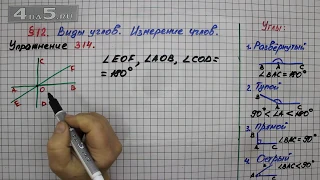 4 на 5.ru
§12. Виды углов. Измерение углов.
Упражнение 314.
∠EOF, ∠AOB, ∠COD =
= 180°
C
F
A
O
B
E
D
Углы:
1. Развёрнутый
B A C
∠BAC = 180°
2. Тупой
90° < ∠A < 180°
3. Прямой
B
A C
∠BAC = 90°
4. Острый
B
A C
∠BAC < 90°